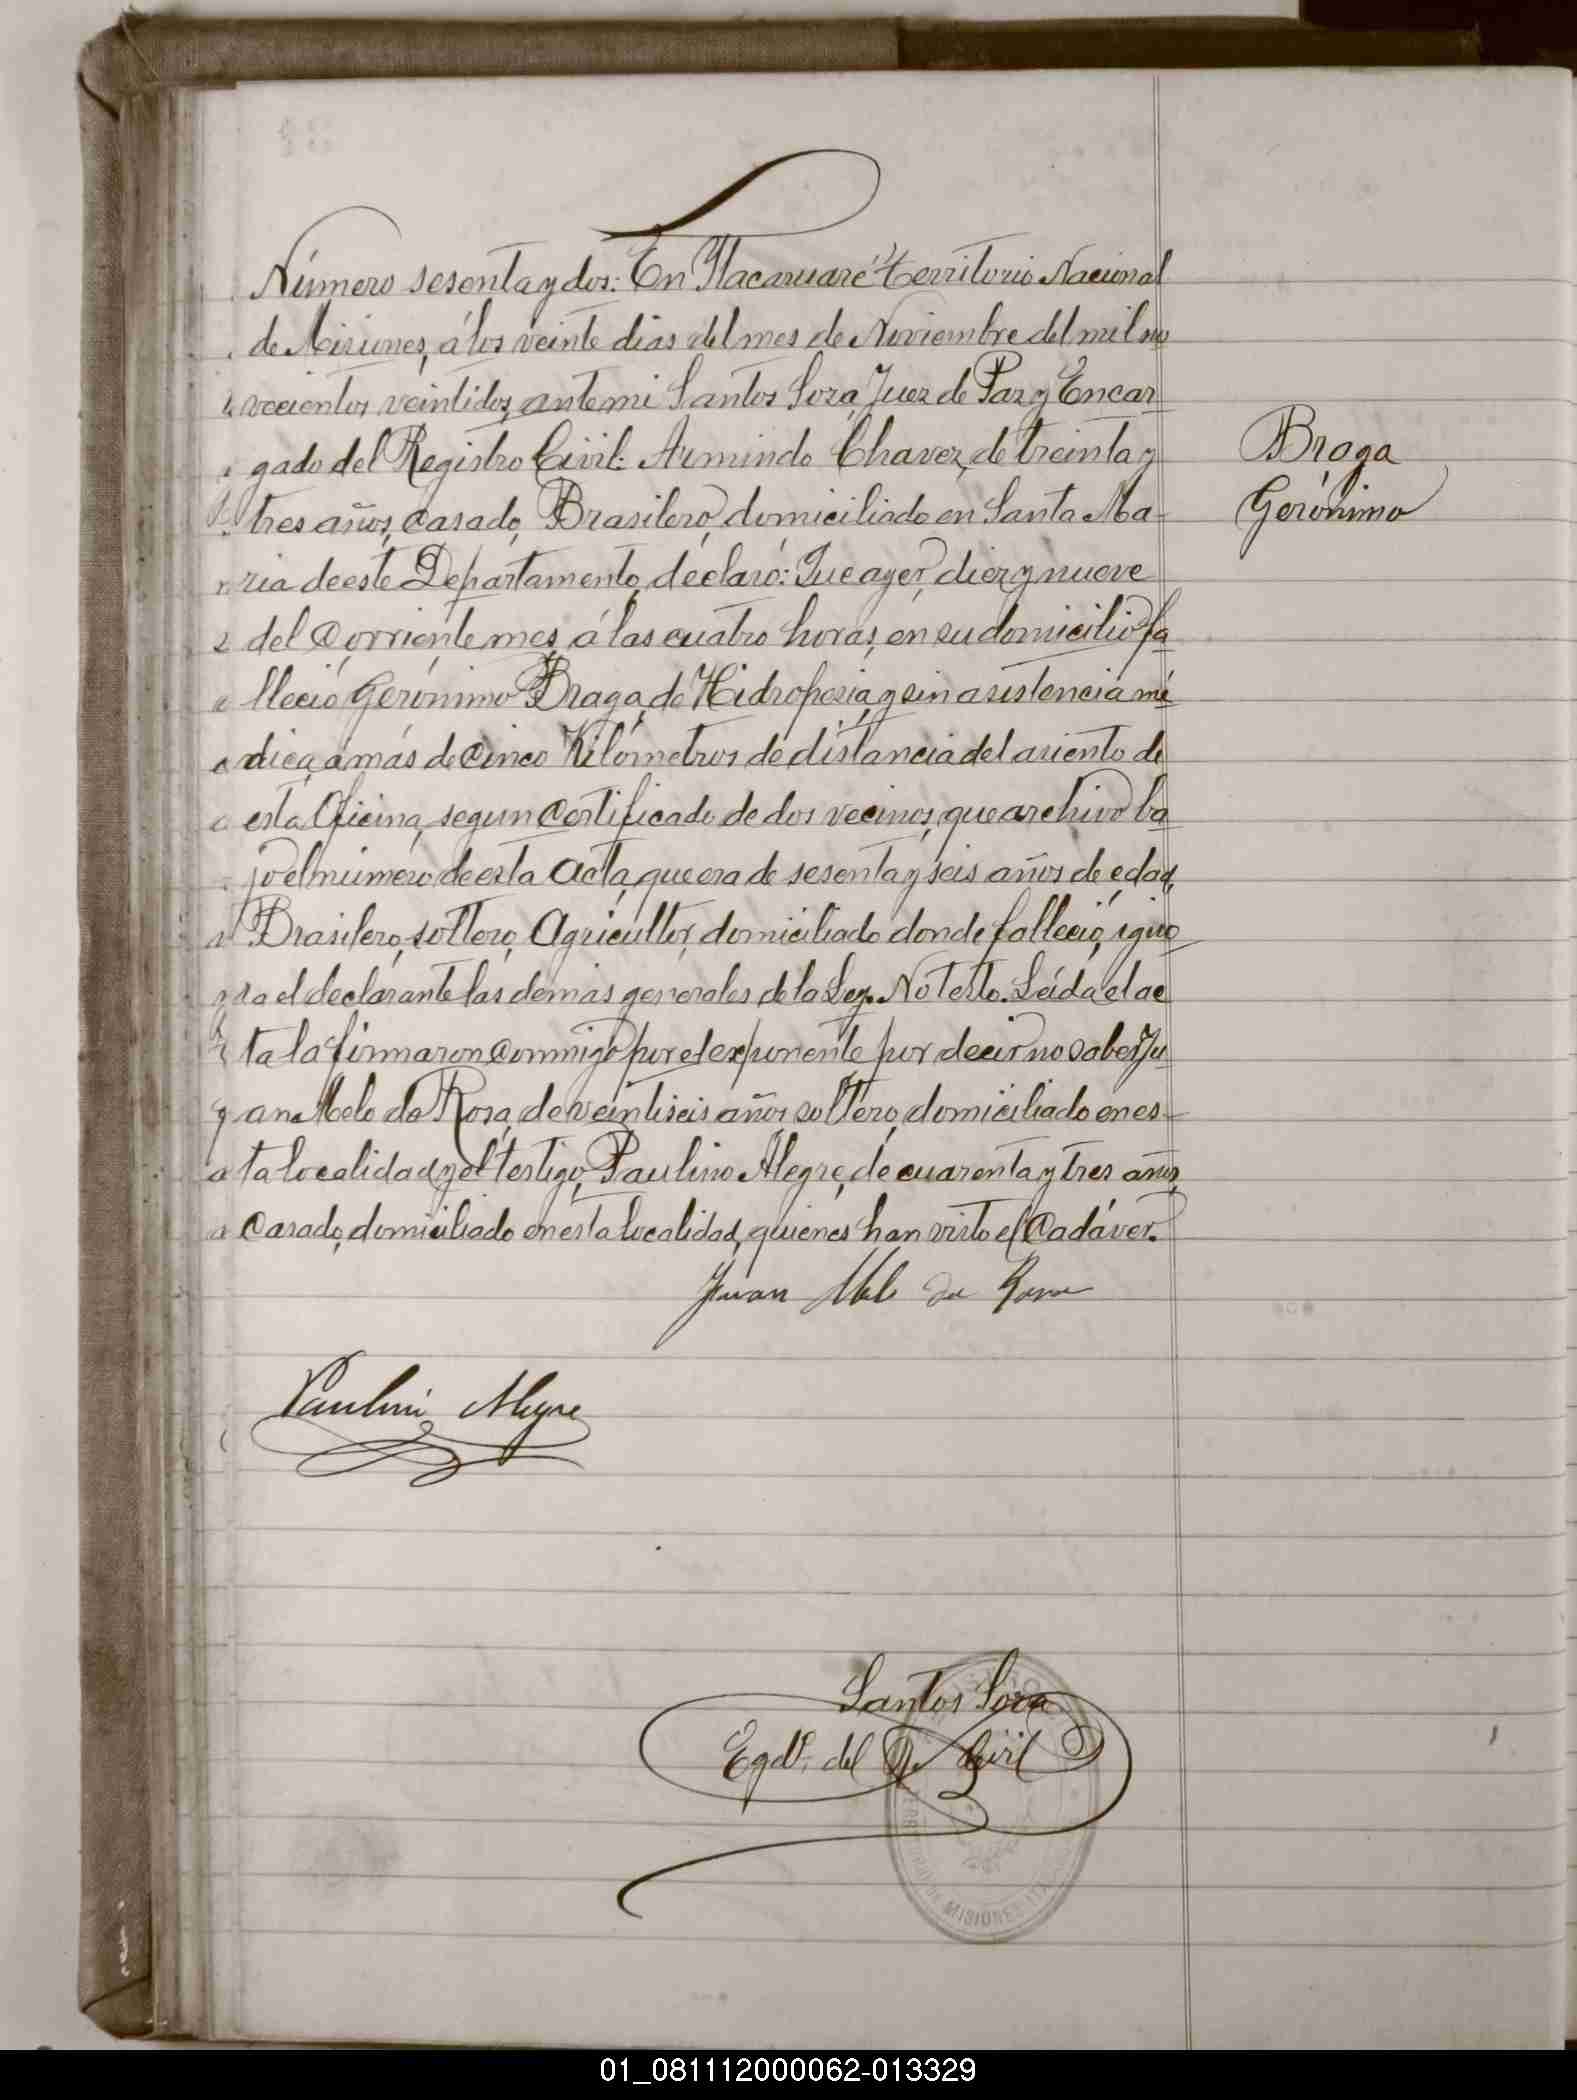 Número sesenta y dos: En Itacaruaré Territorio Nacional
de Misiones, á los veinte dias del mes de Noviembre del mil no
vecientos veintidos, ante mi Santos Sora, Juez de Paz y Encar
gado del Registro Civil: Armindo Chavez, de treinta y
tres años, casado, Brasilero, domiciliado en Santa Ma-
ria de este Departamento, declaró: Que ayer, diez y nueve
del corriente mes, á las cuatro horas, en su domicilio fa
lleció Gerónimo Braga, de Hidropesia, y sin asistencia mé
dica, a más de cinco Kilómetros de distancia del asiento de
esta Oficina, segun certificado de dos vecinos, que archivo ba
jo el número de esta Acta, que era de sesenta y seis años de edad,
Brasilero, soltero, Agricultor, domiciliado donde falleció, igno
ra el declarante las demas generales de la Ley. No testó. Leida el ac
ta la firmaron conmigo por el exponente por decir no saber Ju
an Melo da Rosa, de veintiseis años soltero, domiciliado en es-
ta localidad y el testigo, Paulino Alegre, de cuarenta y tres años,
Casado, domiciliado en esta localidad, quienes han visto el Cadáver.
Braga
Gerónimo
Juan Melo da Rosa
Paulino Alegre
Santos Sora
Egdo. del R. Civil
MISIONES
01_081112000062-013329